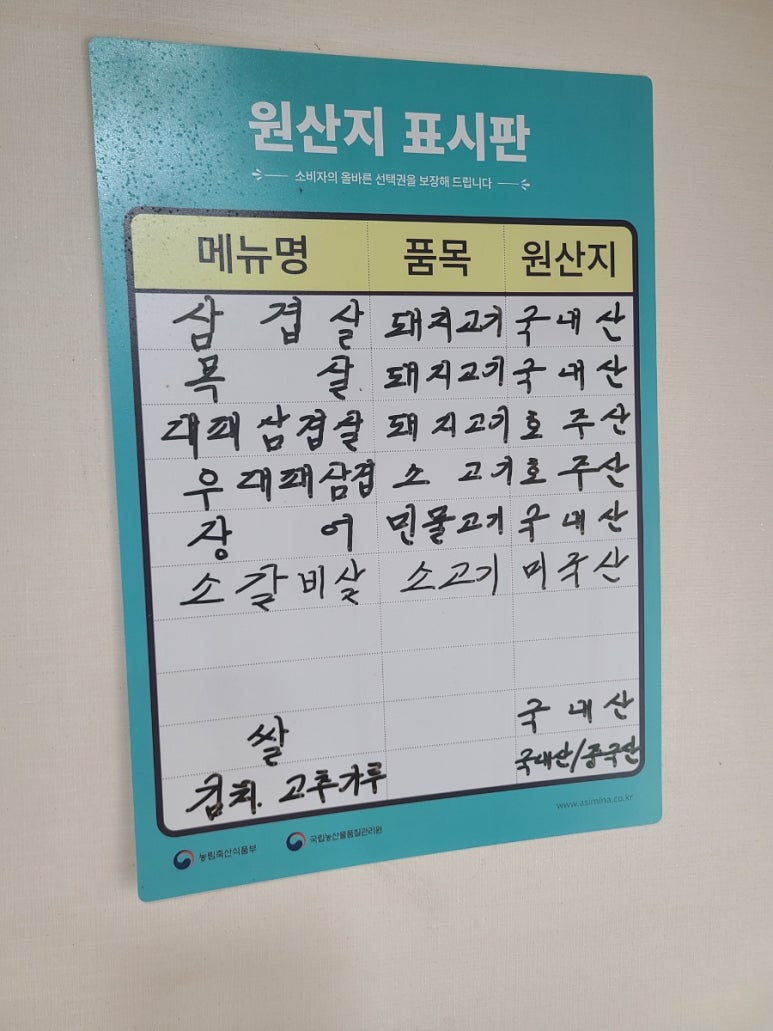 원산지 표시판
소비자의 올바른 선택권을 보장해 드립니다
메뉴명 품목 원산지
삼겹살 돼지고기 국내산
목살 돼지고기 국내산
대패삼겹살 돼지고기 호주산
우대패삼겹 소고기 호주산
장어 민물고기 국내산
소갈비살 소고기 미국산
쌀 국내산
김치. 고추가루 국내산/중국산
www.asimina.co.kr
농림축산식품부 국립농산물품질관리원